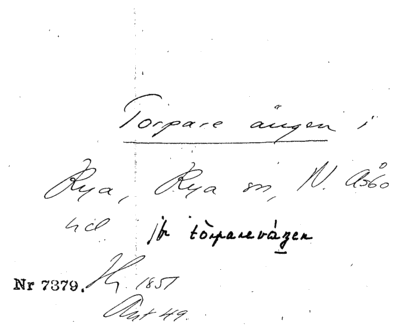 Torpare ängen i
Rya, Rya sn, N. Åsbo
hd jfr torparevägen
Nr 7379. Hy. 1851
Akt 49.